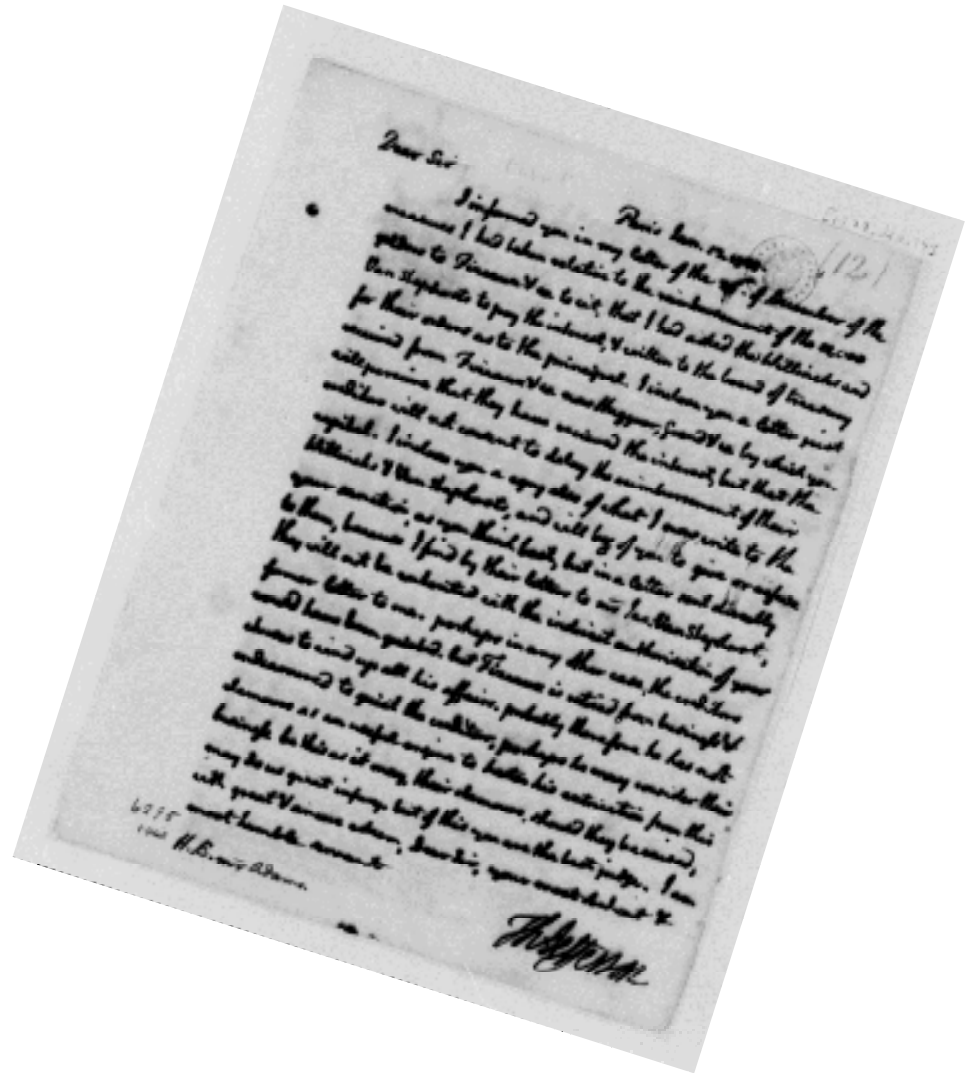 Dear Sir
Paris Jan.
I informed you in my letter of the of December of the
measures I had taken relative to the reimbursement of the
gilders to Fizeaux & co to wit, that I had asked the Willincks and
Van Staphorsts to pay the interest, & written to the board of treasury
for their orders as to the principal. I inclose you a letter just
received from Fizeaux & co now Hogguer, Grand & co by which you
will perceive that they have received the interest, but that the
creditors will not consent to delay the reimbursement of their
capital. I inclose you a copy also of what I now write to the
Willincks & Van Staphorsts, and will beg of you to give
your sanction, as you think best, but in a letter directly
to them, because I find by their letters to me Van Staphorst,
they will not be contented with the indirect authorisation of your
former letter to me. perhaps in any other case, the creditors
would have been quieted. but Fizeaux is retired from business &
desires to wind up all his affairs, probably therefore he has not
endeavored to quiet the creditors, perhaps he may consider their
clamours as an useful engine to hasten his extrication from this
business. be this as it may, their clamours, should they be raised,
may do us great injury. but of this you are the best judge. I am
with great & sincere esteem, Dear Sir, your most obedient &
most humble servant
Th: Jefferson
H.E. mr Adams.